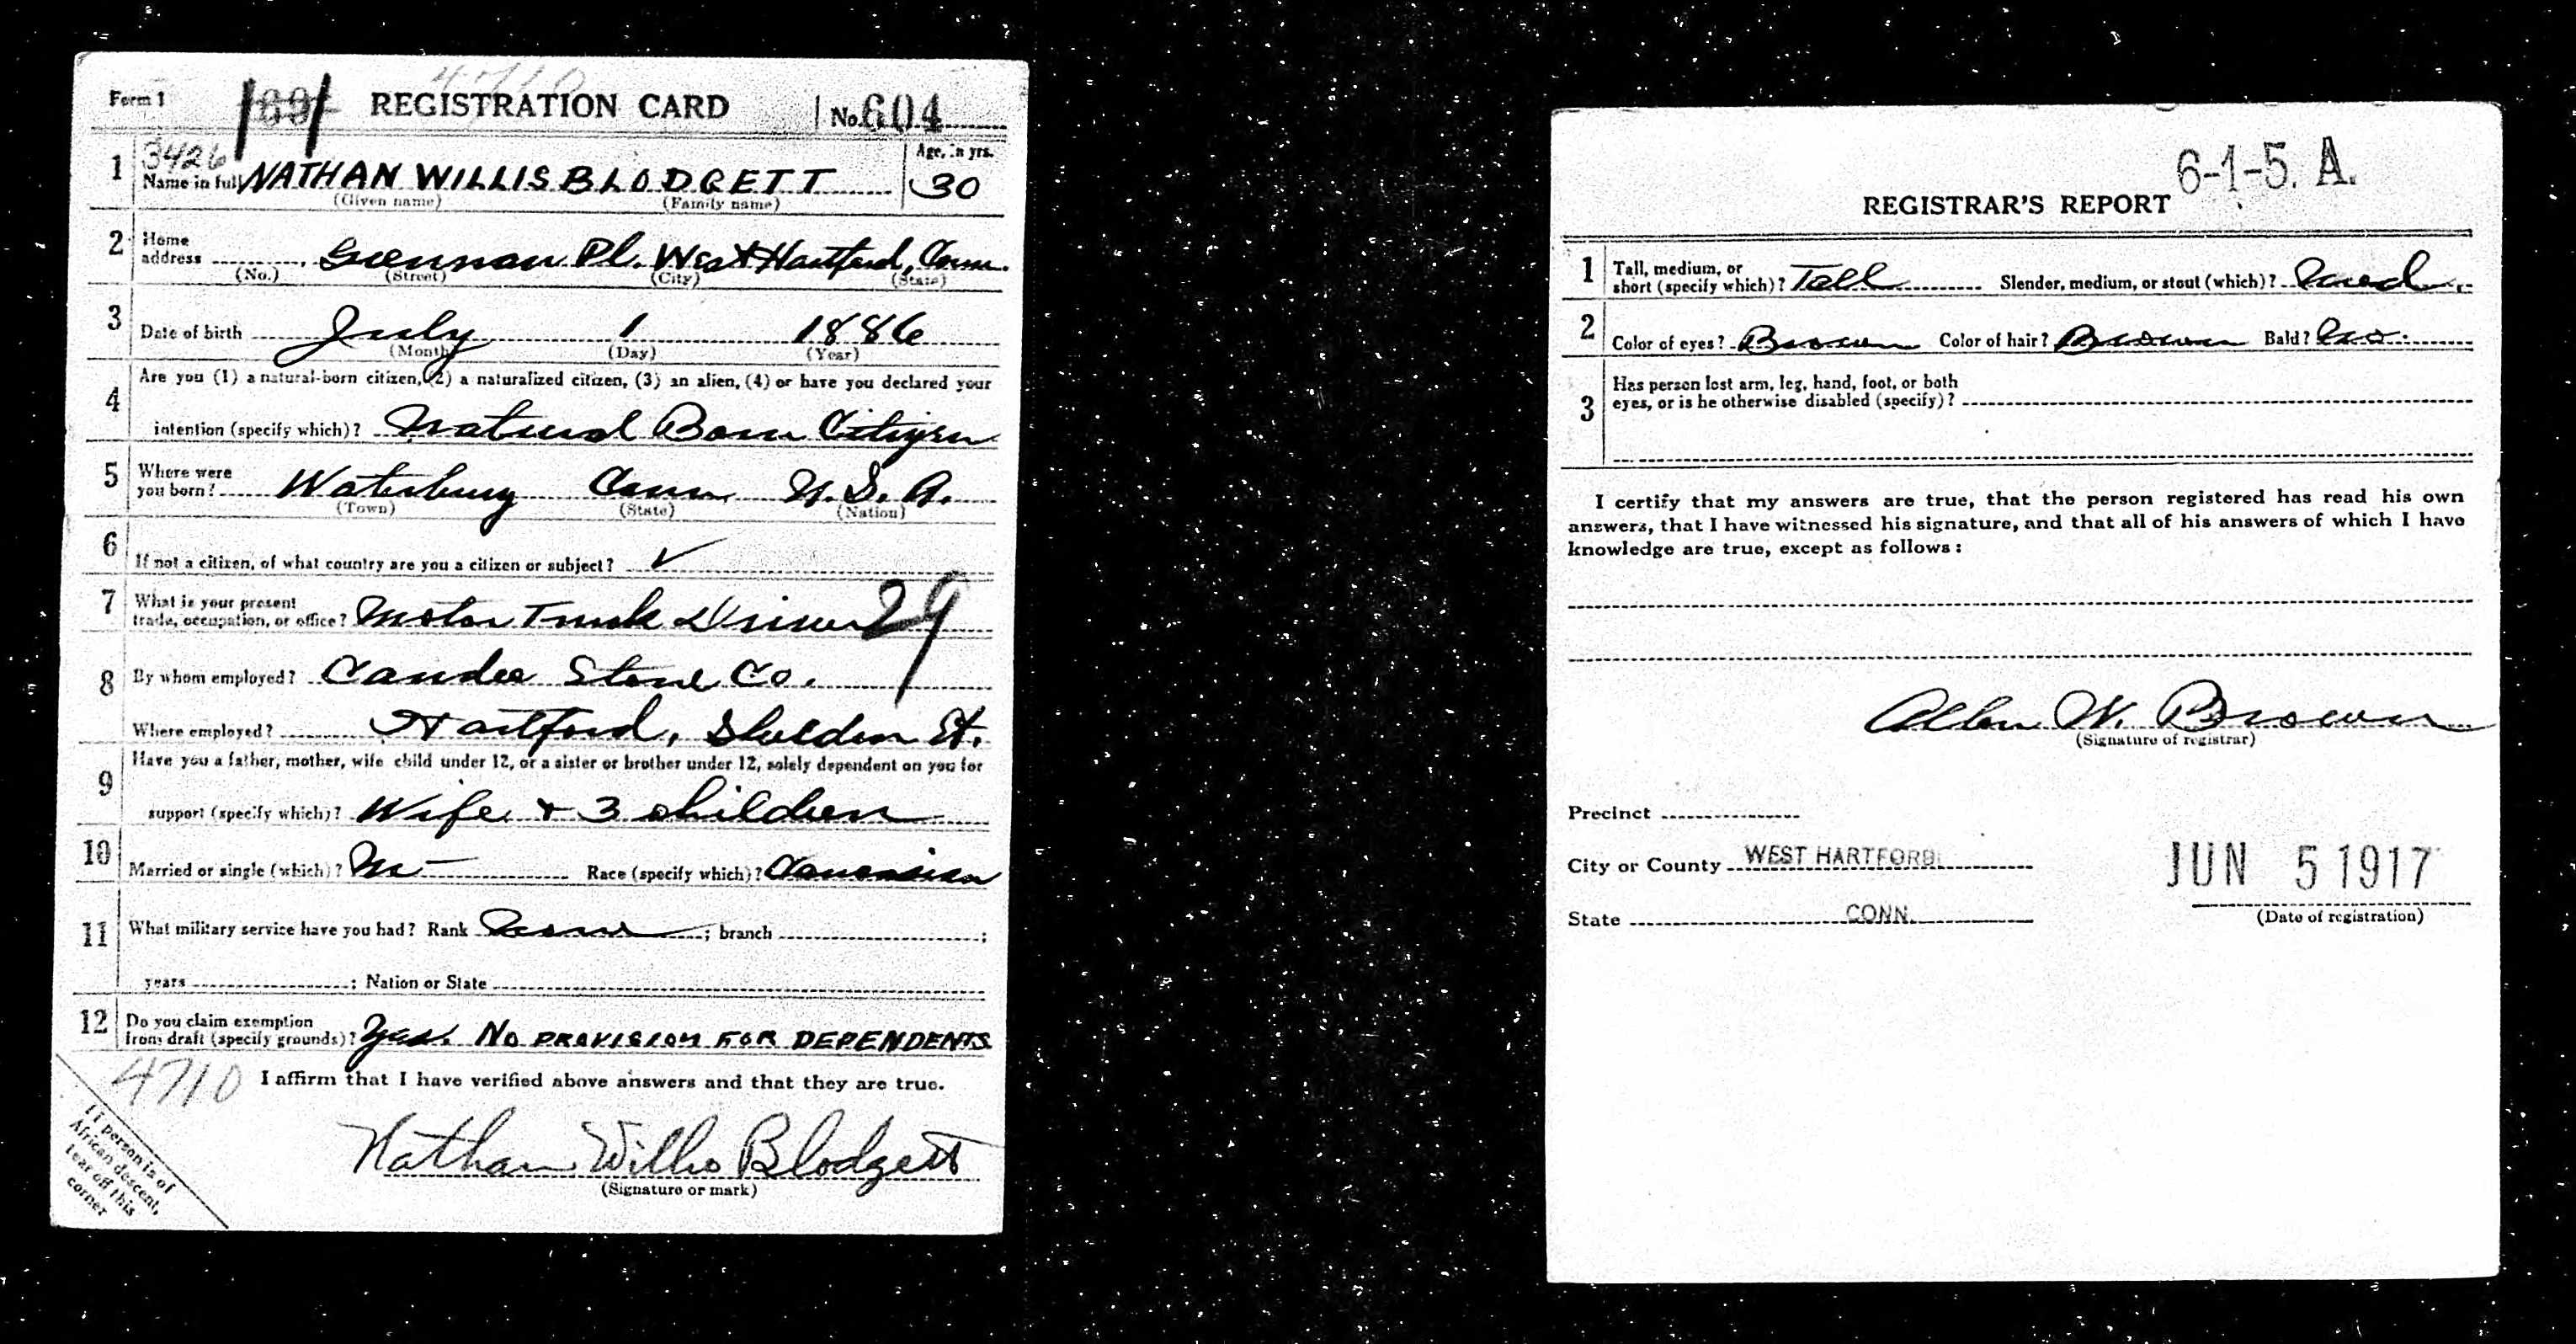 4710
Form 1 REGISTRATION CARD No. 604
3426
1 Name in full NATHAN WILLIS BLODGETT Age, in yrs. 30
(Given name) (Family name)
2 Home address Grennan Pl. West Hartford, Conn.
(No.) (Street) (City) (State)
3 Date of birth July 1 1886
(Month) (Day) (Year)
4 Are you (1) a natural-born citizen, (2) a naturalized citizen, (3) an alien, (4) or have you declared your
intention (specify which)? Natural Born Citizen
5 Where were you born? Waterbury Conn. U. S. A.
(Town) (State) (Nation)
6 If not a citizen, of what country are you a citizen or subject? ✓
7 What is your present trade, occupation, or office? Motor Truck Driver 29
8 By whom employed? Candee Stone Co.
Where employed? Hartford, Sheldon St.
9 Have you a father, mother, wife child under 12, or a sister or brother under 12, solely dependent on you for
support (specify which)? Wife + 3 children
10 Married or single (which)? M - Race (specify which)? Caucasian
11 What military service have you had? Rank None ; branch ;
years ; Nation or State
12 Do you claim exemption from draft (specify grounds)? Yes. NO PROVISION FOR DEPENDENTS
4710 I affirm that I have verified above answers and that they are true.
Nathan Willis Blodgett
(Signature or mark)
If person is of
African descent,
tear off this
corner
6-1-5. A.
REGISTRAR'S REPORT
1 Tall, medium, or short (specify which)? Tall Slender, medium, or stout (which)? Med.
2 Color of eyes? Brown Color of hair? Brown Bald? No.
3 Has person lost arm, leg, hand, foot, or both
eyes, or is he otherwise disabled (specify)?
I certify that my answers are true, that the person registered has read his own
answers, that I have witnessed his signature, and that all of his answers of which I have
knowledge are true, except as follows:
Allen W. Brown
(Signature of registrar)
Precinct
City or County WEST HARTFORD JUN 5 1917
State CONN. (Date of registration)